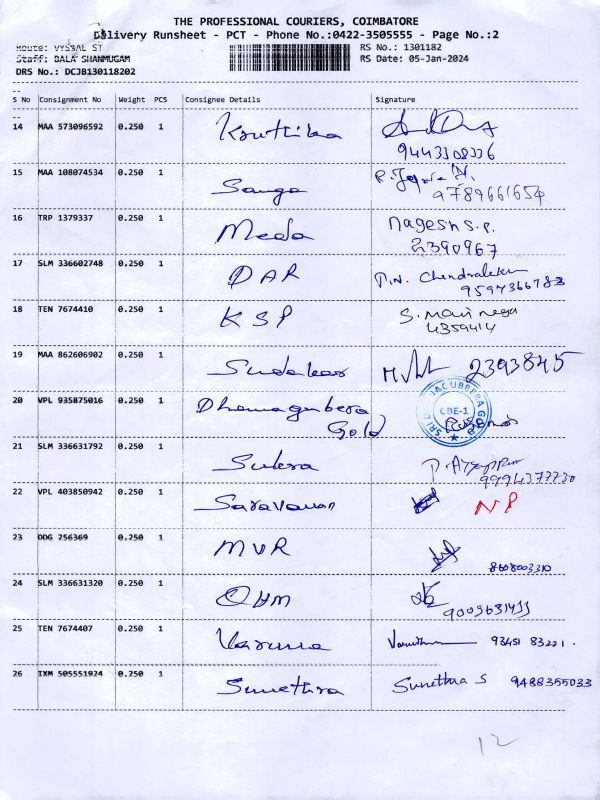 THE PROFESSIONAL COURIERS, COIMBATORE
Delivery Runsheet - PCT - Phone No.:0422-3505555 - Page No.:2
Route: VYSYAL ST RS No.: 1301182
Staff: BALA SHANMUGAM RS Date: 05-Jan-2024
DRS No.: DCJB130118202
S No Consignment No Weight PCS Consignee Details Signature
14 MAA 573096592 0.250 1 Karthika
9443308336
15 MAA 108074534 0.250 1 Sanga
9789661654
16 TRP 1379337 0.250 1 Meda Nagesh S.P.
2390967
17 SLM 336602748 0.250 1 DAR T.N. Chendraleka
9597366783
18 TEN 7674410 0.250 1 KSP S. Mani
4359414
19 MAA 862606902 0.250 1 Sudakar 2393845
20 VPL 935875016 0.250 1 Gold CBE-1
21 SLM 336631792 0.250 1 Sukra P. Ayyappan
9994377730
22 VPL 403850942 0.250 1 Saravanan NP
23 DDG 256369 0.250 1 MVR
8608003310
24 SLM 336631320 0.250 1 OHM
25 TEN 7674407 0.250 1 Varuna 93451 83221.
26 IXM 505551924 0.250 1 Sunethra Sunethra S 9488355033
12